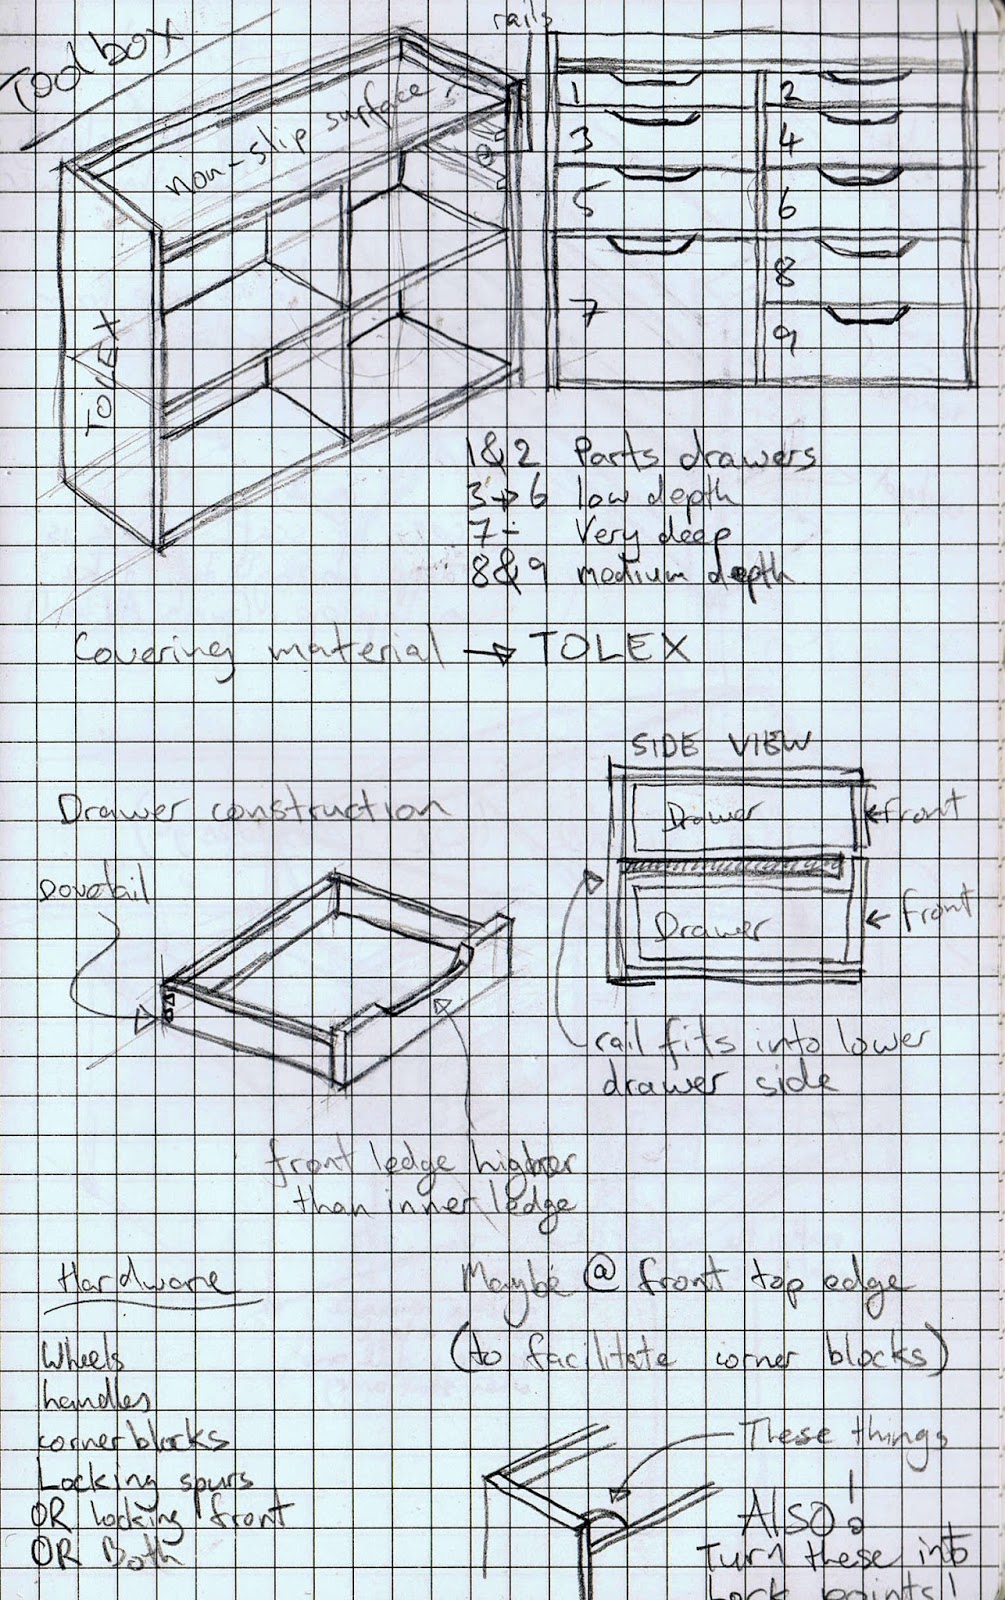 Toolbox
rails
non-slip surface
TOLEX
1
2
3
4
5
6
7
8
9
1&2 Parts drawers
3→6 low depth
7- Very deep
8&9 medium depth
Covering material → TOLEX
SIDE VIEW
Drawer
front
Drawer
front
Drawer construction
Dovetail
rail fits into lower
drawer side
front ledge higher
than inner ledge
Hardware
Wheels
handles
corner blocks
Locking spurs
OR Locking front
OR Both
Maybe @ front top edge
(to facilitate corner blocks)
These things
ALSO!
Turn these into
Lock points!